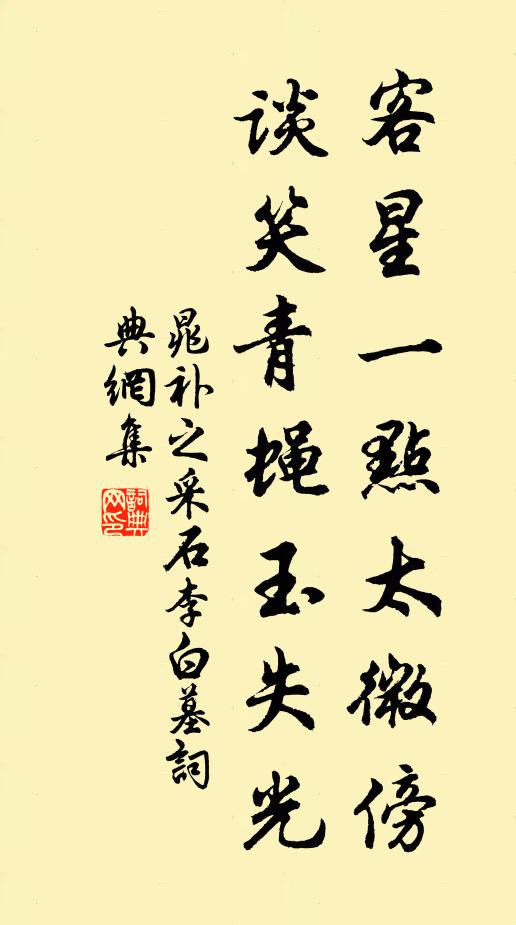 客星一點太微傍
談笑青蝇玉失光
晁补之采石李白墓詞
典網集
詞典
网印